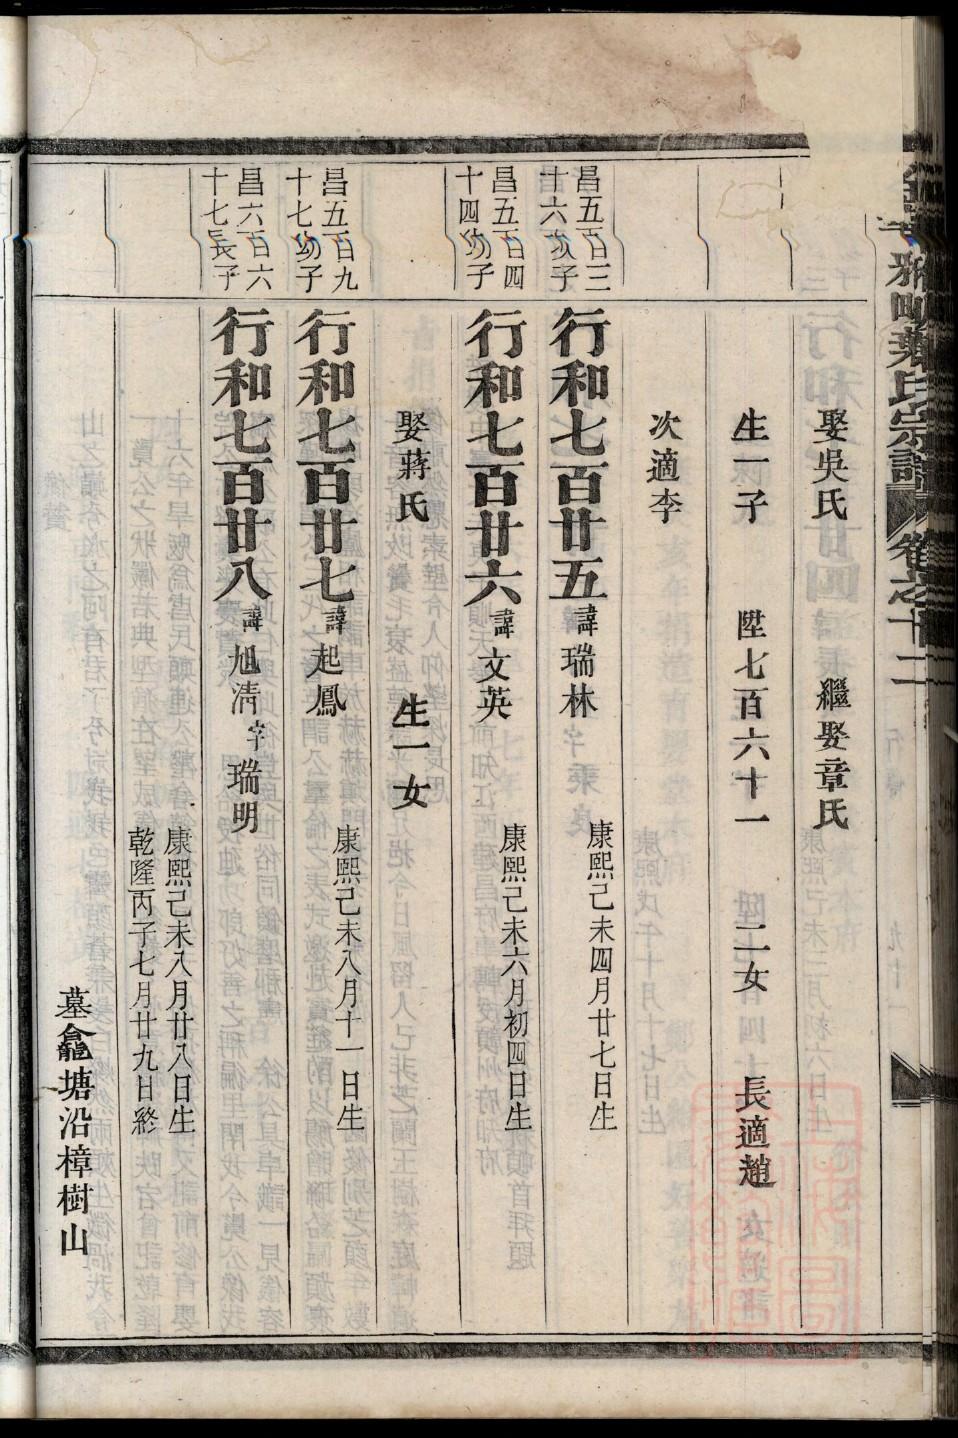 雅㽛葉氏宗譜 卷之十二
娶吳氏 繼娶章氏
生一子 陞七百六十一 陞二女 長適趙
次適李
昌五百三十六次子 行和七百廿五 諱瑞林 康熙己未四月廿七日生
昌五百四十四幼子 行和七百廿六 諱文英 康熙己未六月初四日生
娶蔣氏 生一女
昌五百九十七幼子 行和七百廿七 諱起鳳 康熙己未八月十一日生
昌六百六十七長子 行和七百廿八 諱旭淸 字瑞明 康熙己未八月廿八日生
乾隆丙子七月廿九日終
墓龕塘沿樟樹山